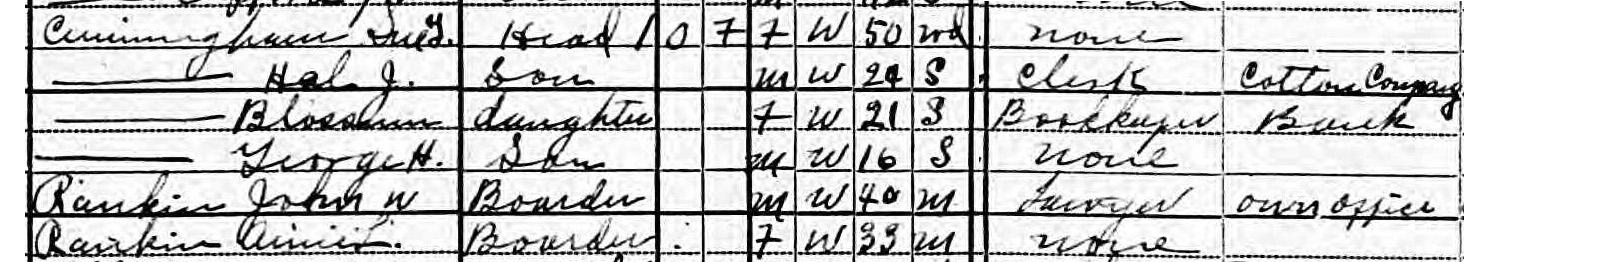 Cunningham Sue J. Head 1 0 7 7 W 50 wd none
Hal J. Son m W 24 S Clerk Cotton Company
Blossum daughter 7 W 21 S Bookkeper Bank
George H. Son m W 16 S none
Rankin John W Boarder m W 40 m Lawyer own office
Rankin Boarder 7 W 33 m none